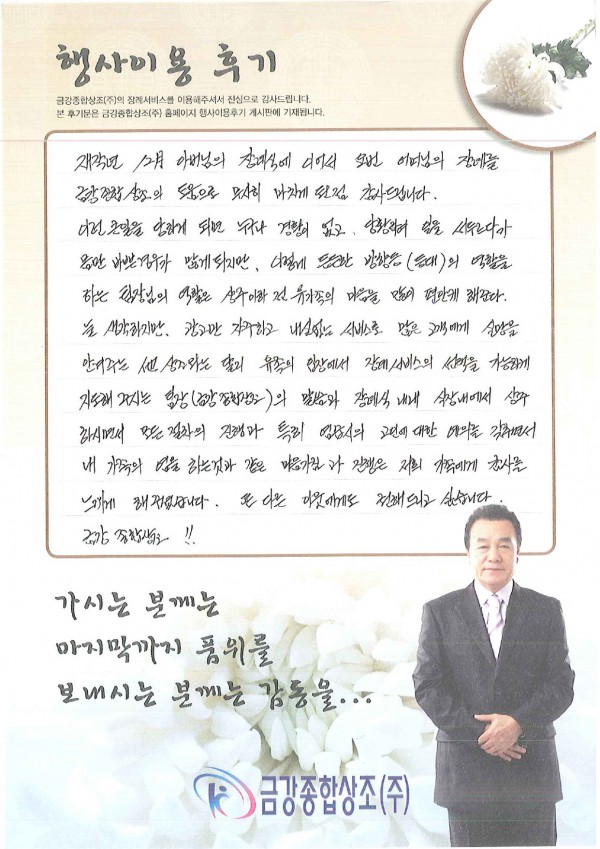 행사이용 후기
금강종합상조(주)의 장례서비스를 이용해주셔서 진심으로 감사드립니다.
본 후기문은 금강종합상조(주) 홈페이지 행사이용후기 게시판에 기재됩니다.
재작년 12월 아버님의 장례식에 이어서 또한 어머님의 장례를
금강종합상조의 도움으로 무사히 마치게 되어 감사드립니다.
이런 큰일을 당하게 되면 누구나 경황이 없고, 당황하여 일을 서두르다가
몸만 바쁜경우가 많게되지만, 이렇게 든든한 방향등(등대)의 역할을
하는 팀장님의 역할은 상주이하 전 유가족의 마음을 많이 편안케 해준다.
늘 생각하지만, 광고만 자주하고 내실없는 서비스로 많은 고객에게 실망을
안겨주는 상조와는 달리 유족의 입장에서 장례서비스의 선택을 가능하게
지도해 주시는 팀장(금강종합상조)의 말씀과 장례식 내내 식장내에서 상주
하시면서 모든 절차의 진행과 특히 입관시의 고인에 대한 예의를 갖추면서
내 가족의 일을 하는것과 같은 마음가짐과 진행은 저희 가족에게 감사를
느끼게 해 주었습니다. 또 다른 이웃에게도 전해드리고 싶습니다.
금강 종합상조 !!
가시는 분께는
마지막까지 품위를
보내시는 분께는 감동을...
금강종합상조(주)